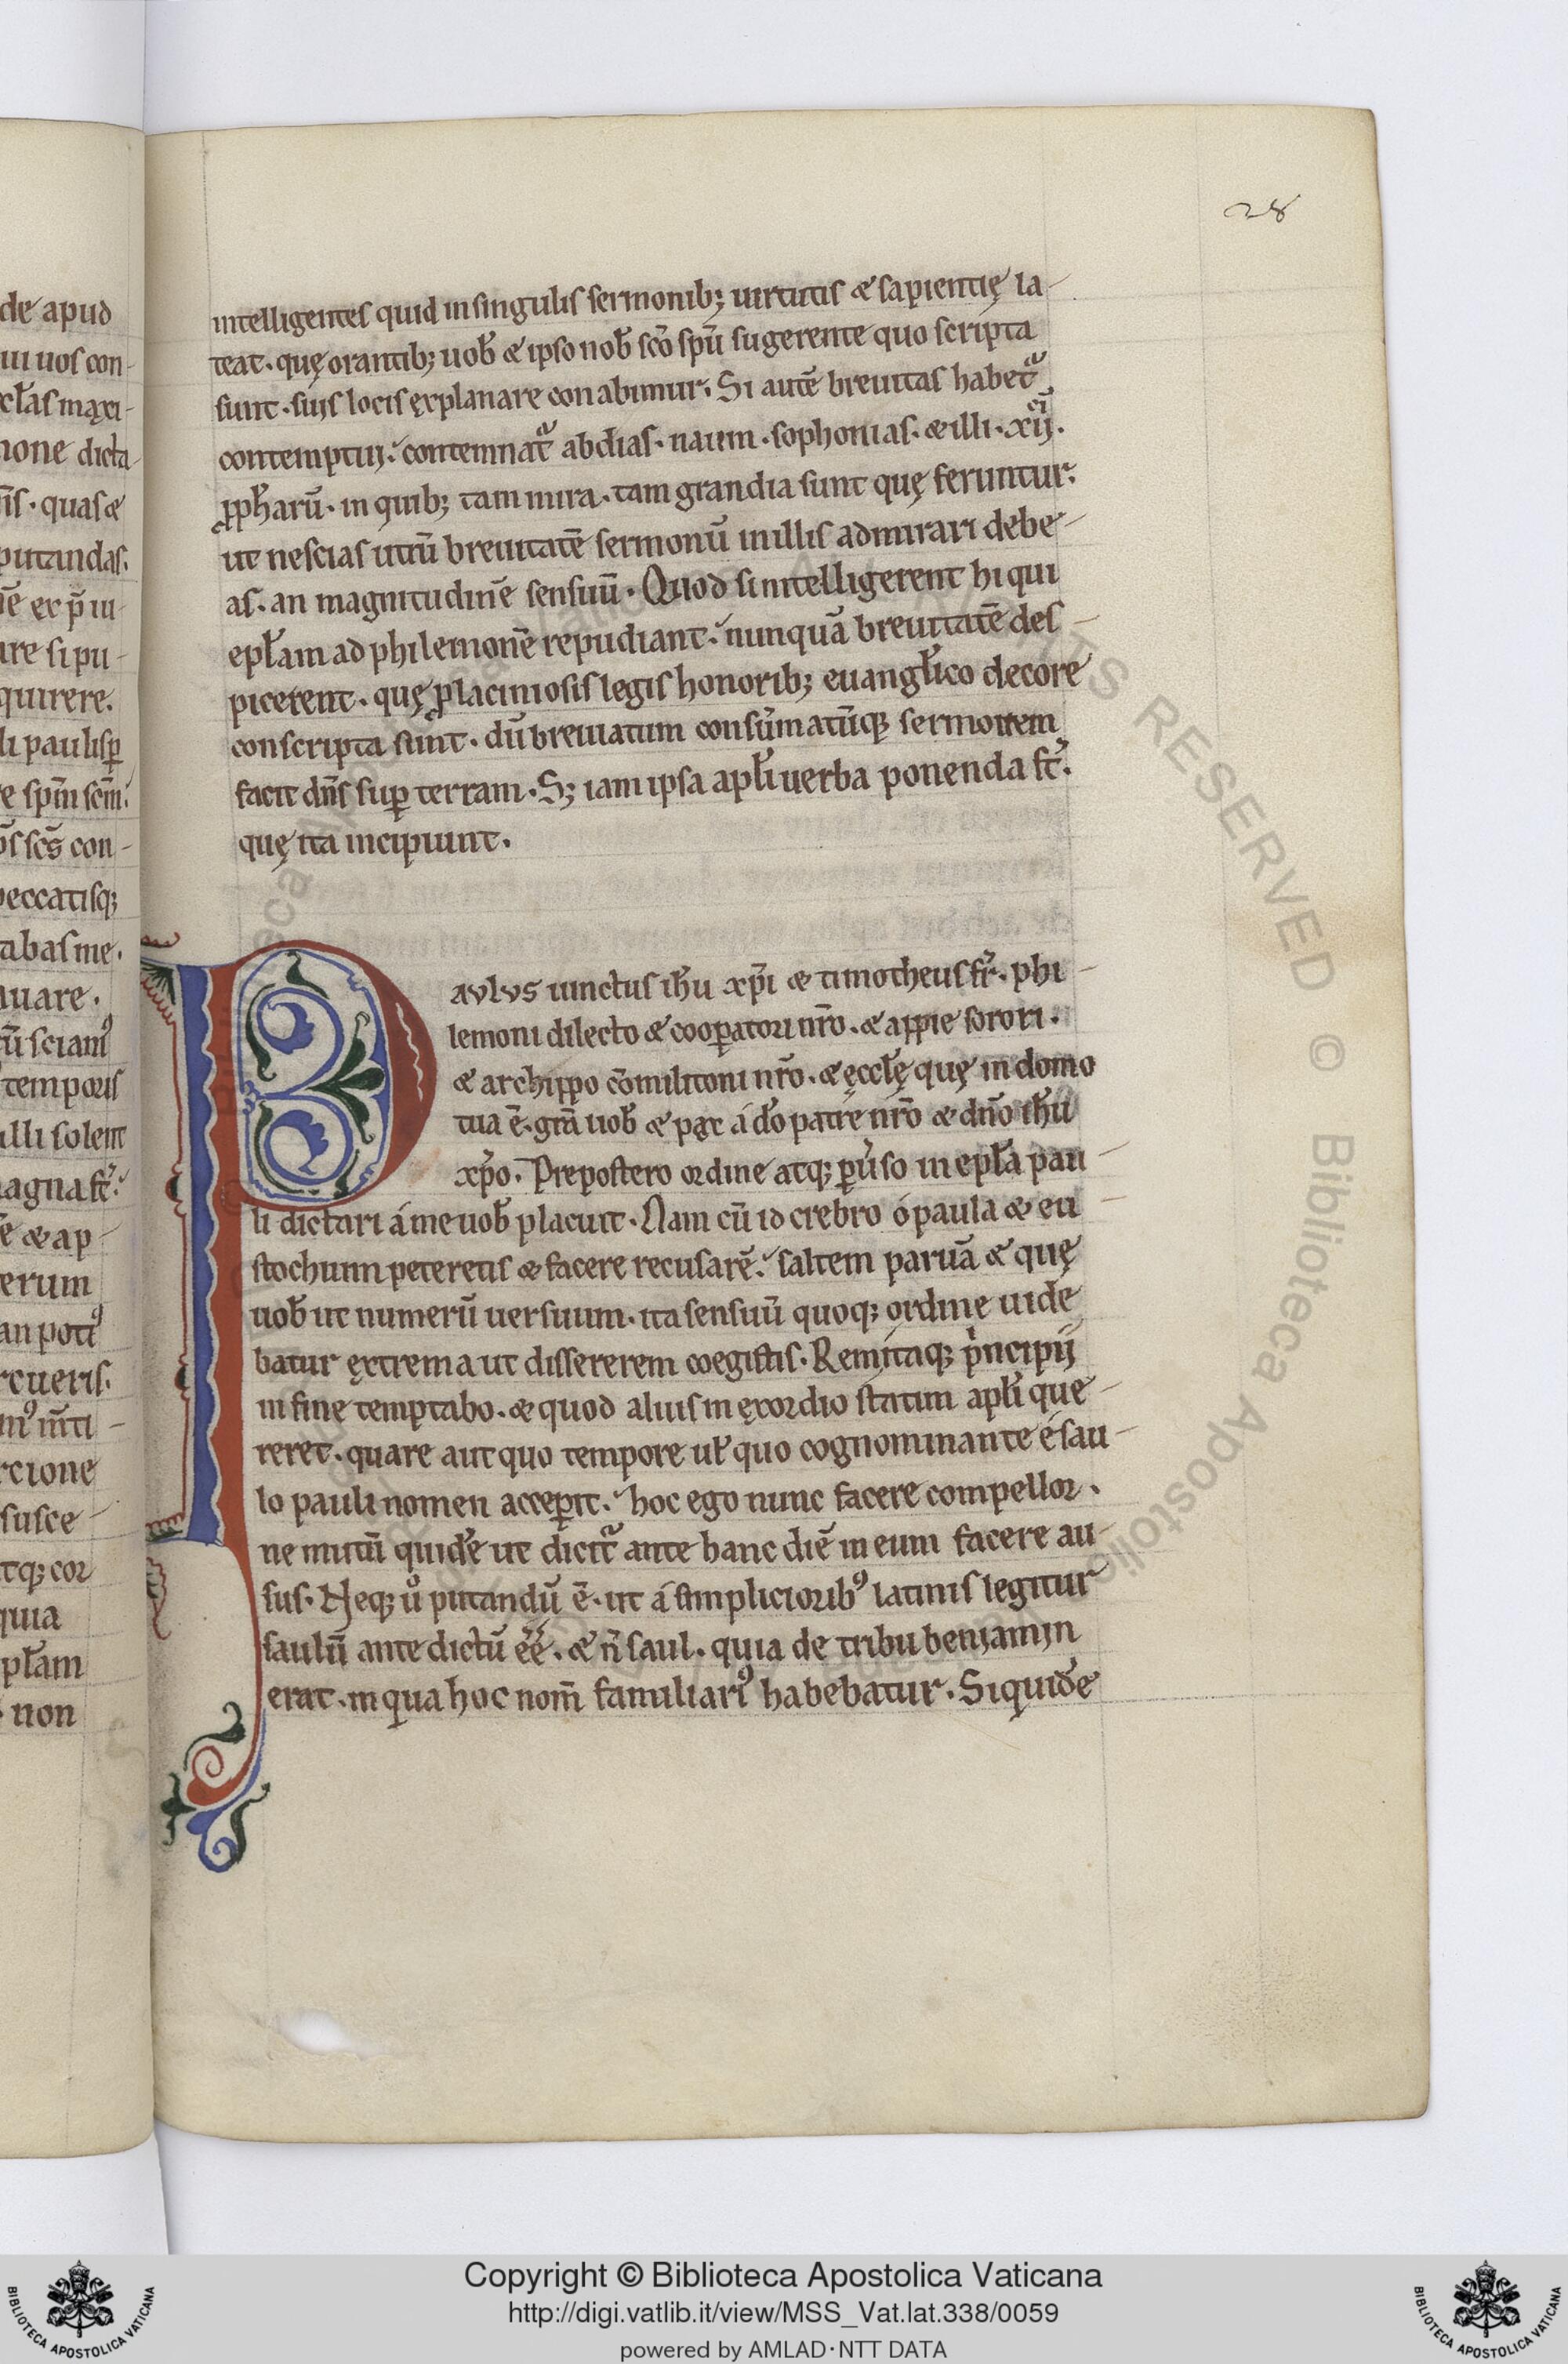 28
intelligentes quid in singulis sermonib; uirtutis & sapientię la-
teat. quę orantib; uob̄ & ipso nob̄ sc̄o sp̄u sugerente quo scripta
sunt. suis locis ęxplanare conabimur. Si autē breuitas habet᷑
contemptui; contemnat᷑ abdias. naum. sophonias. & illi. xij.
ꝓph̄arū. in quib; tam mira. tam grandia sunt quę feruntur;
ut nescias utrū breuitatē sermonū in illis admirari debe-
as. an magnitudinē sensuū. Quod si intelligerent hi qui
epl̄am ad philemonē repudiant; nunquā breuitatē des-
picerent. quę ꝓ laciniosis legis honorib; euangl̄ico decore
conscripta sunt. dū breuiatum consūmatūq; sermonem
facit dn̄s suꝑ terram. S; iam ipsa apl̄i uerba ponenda st̄.
quę ita incipiunt.
Paulus uinctus ih̄u xp̄i & timotheus fr̄. phi-
lemoni dilecto & cooꝑatori nr̄o. & appie sorori.
& archippo cōmilitoni nr̄o. & ęccl̄ę quę in domo
tua ē. gr̄a uob̄ & pax á dō patre nr̄o & dn̄o ih̄u
xp̄o. Prepostero ordine atq; ꝑu̾so in epl̄a pau-
li dictari á me uob̄ placuit. Nam cū id crebro ó paula & eu-
stochium peteretis & facere recusarē; saltem paruā & quę
uob̄ ut numerū uersuum. ita sensuū quoq; ordine uide
batur ęxtrema ut dissererem coegistis. Remitaq; pͥncipij
in fine temptabo. & quod alius in ęxordio statim apl̄i que-
reret. quare aut quo tempore ul̄ quo cognominante é sau-
lo pauli nomen acceꝑit; hoc ego nunc facere compellor.
ne mutū quidē ut dicit᷑ ante hanc diē in eum facere au-
sus. Neq; uͦ putandū ē. ut á simplicioribꝰ latinis legitur
saulū ante dictū ēē. & n̄ saul. quia de tribu beniamin
erat. in qua hoc nom̄ familiariꝰ habebatur. Siquidē
de apud
ui uos con-
ccl̄as maxi-
none dicta-
quas &
putandas.
are si pu-
quirere.
li paulisꝑ
e sp̄m sc̄m;
sc̄s con-
peccatisq;
abas me.
uare.
ū sciamꝰ
temporis
illi solent
agna st̄;
ē & ap-
erum
an potiꝰ
rcueris.
rcione
susce-
tq; cor
quia
pl̄am
non
RESERVED © Biblioteca Apostolica
Copyright © Biblioteca Apostolica Vaticana
http://digi.vatlib.it/view/MSS_Vat.lat.338/0059
powered by AMLAD·NTT DATA
BIBLIOTECA APOSTOLICA VATICANA
BIBLIOTECA APOSTOLICA VATICANA